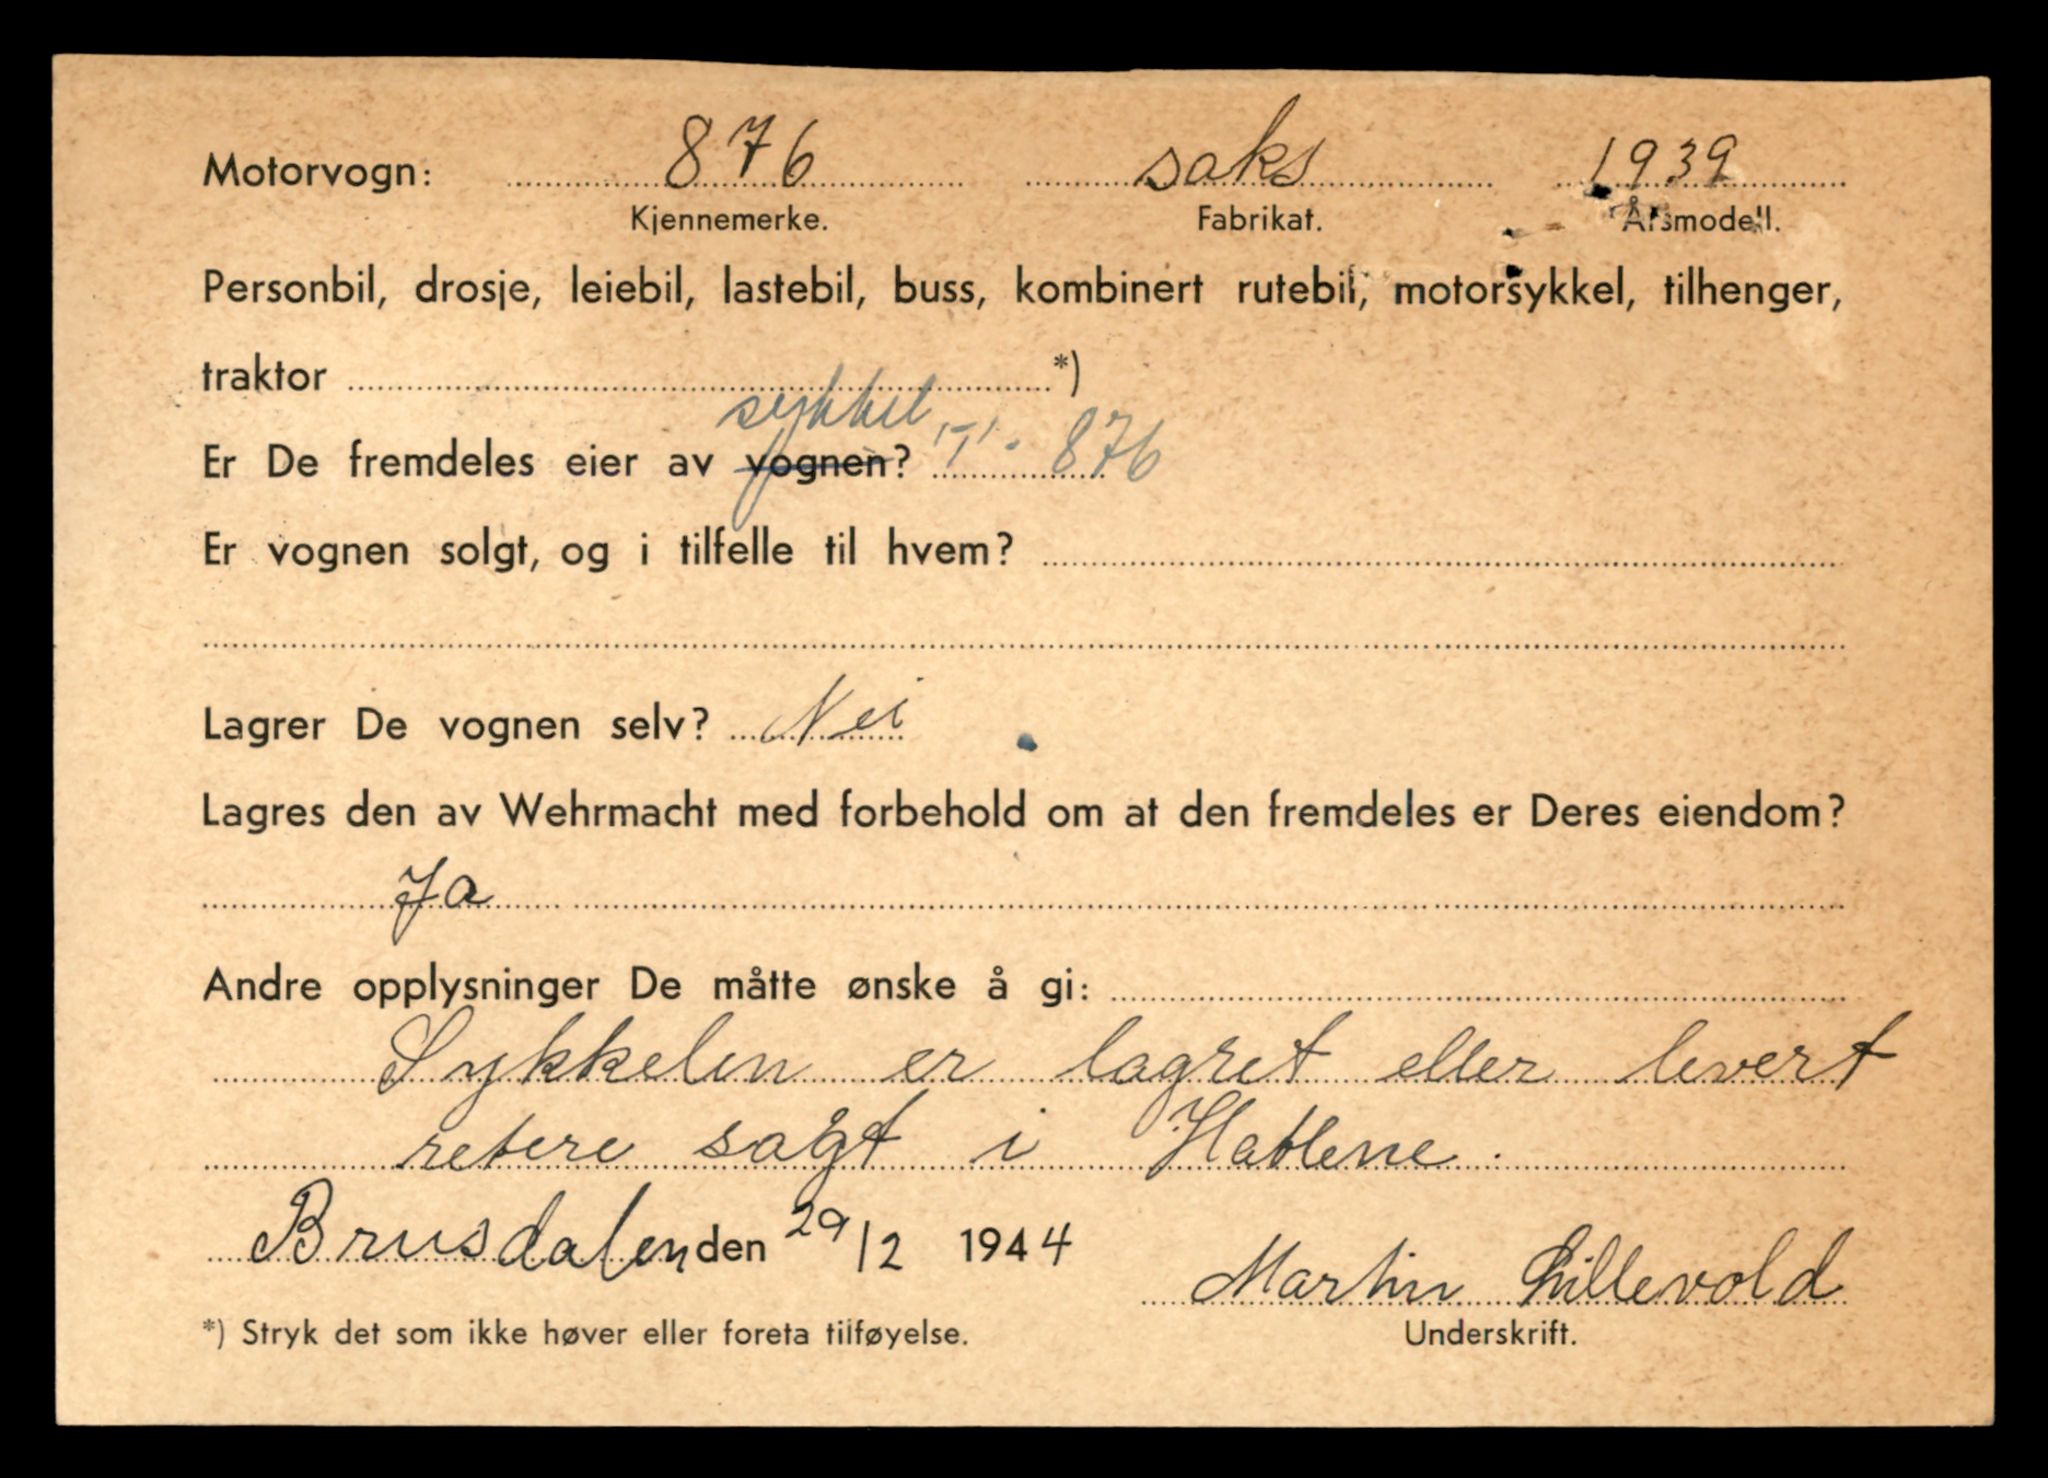 Motorvogn: 876 saks 1939
Kjennemerke. Fabrikat. Årsmodell.
Personbil, drosje, leiebil, lastebil, buss, kombinert rutebil, motorsykkel, tilhenger,
traktor *)
sykkel
Er De fremdeles eier av vognen? "T". 876
Er vognen solgt, og i tilfelle til hvem?
Lagrer De vognen selv? Nei
Lagres den av Wehrmacht med forbehold om at den fremdeles er Deres eiendom?
Ja
Andre opplysninger De måtte ønske å gi:
Sykkelen er lagret eller levert
retere sagt i Hatlene.
Brusdalen den 29/2 1944
Martin Lillevold
*) Stryk det som ikke høver eller foreta tilføyelse. Underskrift.